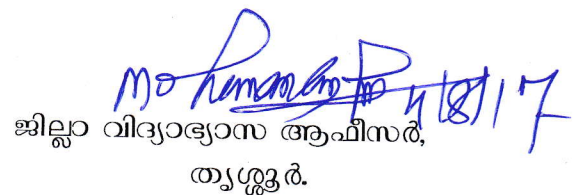 4/8/17
ജില്ലാ വിദ്യാഭ്യാസ ആഫീസർ,
തൃശ്ശൂർ.